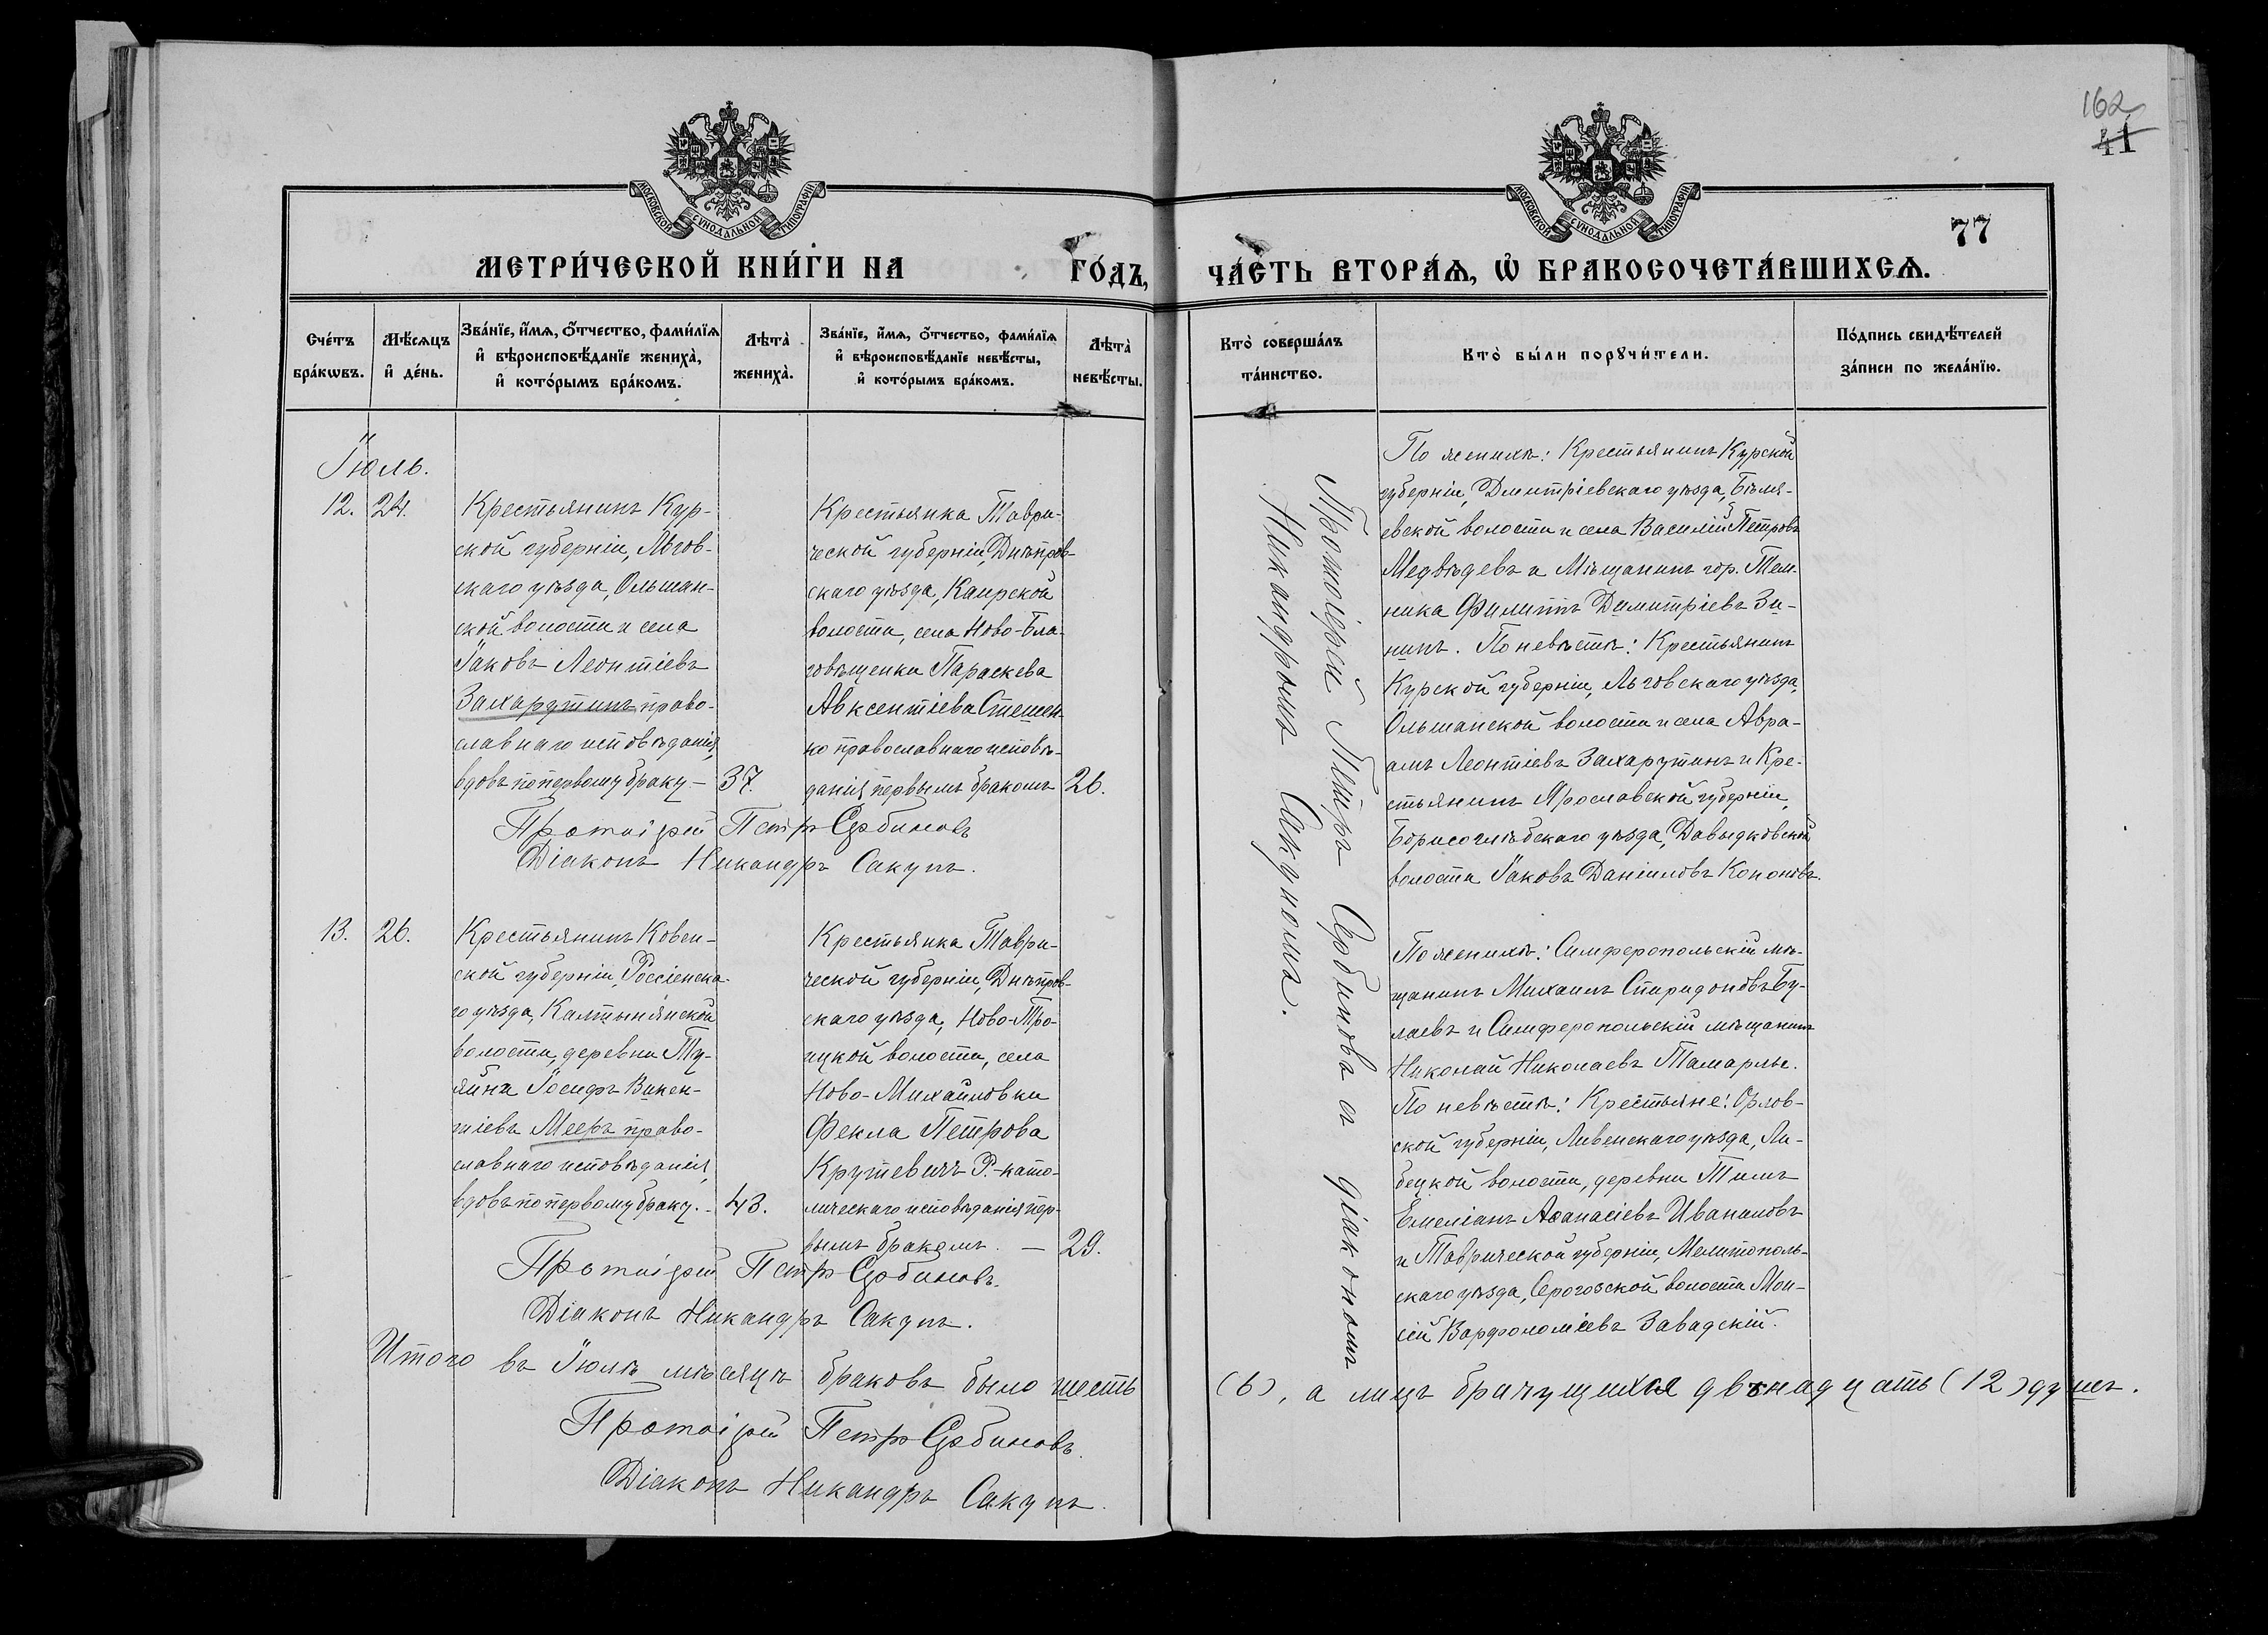 162
41
77
МОСКОВСКОЙ СѴНОДАЛЬНОЙ ТИПОГРАФІИ
МОСКОВСКОЙ СѴНОДАЛЬНОЙ ТИПОГРАФІИ
МЕТРИ́ЧЕСКОЙ КНИ́ГИ НА ГО́ДЪ,
ЧА́СТЬ ВТОРА́Ѧ, Ѡ҆ БРАКОСОЧЕТА́ВШИХСѦ.
Сче́тъ
бра́кѡвъ.
Мѣ́сѧцъ
и҆ де́нь.
Зва́нїе, и҆́мѧ, ѻ҆́тчество, фами́лїѧ
и҆ вѣроисповѣ́данїе жениха̀,
и҆ кото́рымъ бра́комъ.
Лѣта̀
жениха̀.
Зва́нїе, и҆́мѧ, ѻ҆́тчество, фами́лїѧ
и҆ вѣроисповѣ́данїе невѣ́сты,
и҆ кото́рымъ бра́комъ.
Лѣта̀
невѣ́сты.
Кто̀ соверша́лъ
та́инство.
Кто̀ бы́ли порꙋчи́тели.
По́дпись свидѣ́телей
за́писи по жела́нїю.
Іюль.
12.
24.
Крестьянинъ Кур-
ской губерніи, Льгов-
скаго уѣзда, Ольшан-
ской волости и села
Іаковъ Леонтіевъ
Захарутинъ право-
славнаго исповѣданія,
вдовъ по первому браку –
37.
Крестьянка Таври-
ческой губерніи, Днѣпров-
скаго уѣзда, Каирской
волости, села Ново-Бла-
говѣщенки Параскева
Авксентіева Стешен-
ко православнаго исповѣ-
данія первымъ бракомъ
26.
Протоіерей Петръ Сербиновъ
Діаконъ Никандръ Сакунъ.
Протоіерей Петръ Сербиновъ съ діакономъ
Никандромъ Сакуномъ.
По женихѣ: Крестьянинъ Курской
губерніи, Дмитріевскаго уѣзда, Бѣля-
евской волости и села Василій Петровъ
Медвѣдевъ и Мѣщанинъ гор. Тем-
ника Филиппъ Димитріевъ Зи-
нинъ. По невѣстѣ: Крестьянинъ
Курской губерніи, Льговскаго уѣзда,
Ольшанской волости и села Авра-
амъ Леонтіевъ Захарутинъ и Кре-
стьянинъ Ярославской губерніи,
Борисоглѣбскаго уѣзда, Давыдковской
волости Іаковъ Даніиловъ Кононовъ.
13.
26.
Крестьянинъ Ковен-
ской губерніи, Россіенска-
го уѣзда, Калтынянской
волости, деревни Ту-
яйни Іосифъ Викен-
тіевъ Мееръ право-
славнаго исповѣданія,
вдовъ по первому браку. –
43.
Крестьянка Таври-
ческой губерніи, Днѣпров-
скаго уѣзда, Ново-Тро-
ицкой волости, села
Ново-Михайловки
Фекла Петрова
Крутевичъ Р.-като-
лическаго исповѣданія пер-
вымъ бракомъ. –
29.
Протоіерей Петръ Сербиновъ.
Діаконъ Никандръ Сакунъ.
По женихѣ: Симферопольскій мѣ-
щанинъ Михаилъ Спиридоновъ Бу-
лаевъ и Симферопольскій мѣщанинъ
Николай Николаевъ Тамарлы.
По невѣстѣ: Крестьяне: Орлов-
ской губерніи, Ливенскаго уѣзда, Ли-
бецкой волости, деревни Тимъ
Емеліанъ Аѳанасіевъ Иваниловъ
и Таврической губерніи, Мелитополь-
скаго уѣзда, Серогозской волости Мои-
сій Варфоломіевъ Завадскій.
Итого въ Іюлѣ мѣсяцѣ браковъ было шесть (6), а лицъ брачущихся двѣнадцать (12) душъ.
Протоіерей Петръ Сербиновъ.
Діаконъ Никандръ Сакунъ.